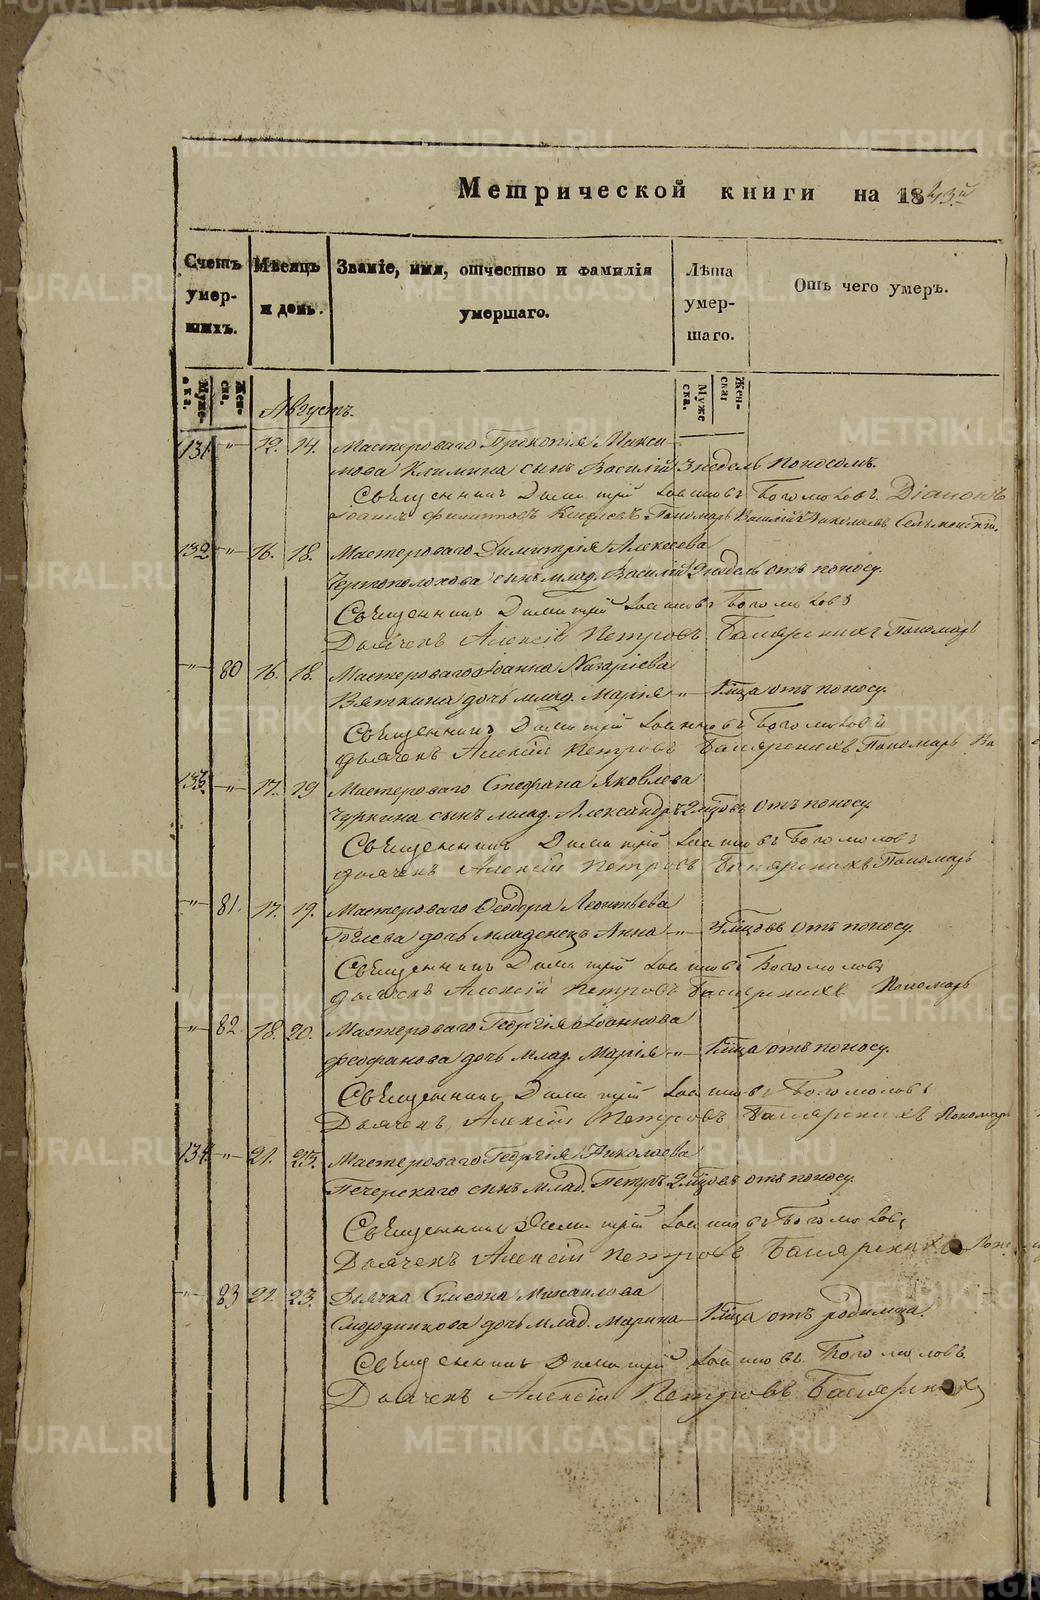 Метрической книги на 1843й
Счетъ умер-шихъ.
Мѣсяцъ и день.
Званіе, имя, отчество и фамилія умершаго.
Лѣта умер-шаго.
Отъ чего умеръ.
Муже-ска.
Жен-ска.
Муже ска.
Жен-ска
Августъ.
131 " 12. 14. Мастероваго Прокопія Макси-
мова Климина сынъ Василій 3 недель поносомъ.
Священникъ Димитрій Іоанновъ Богомоловъ Діаконъ
Іоаннъ Филиповъ Пономарь Василій Николаевъ
132 " 16. 18. Мастероваго Димитрія Алексеева
Чертополохова сынъ млад. Василій 2 недель отъ поносу.
Священникъ Димитрій Іоанновъ Богомоловъ
Дьячекъ Алексій Петровъ Пономарь
" 80 16. 18. Мастероваго Іоанна Назаріева
Вяткина дочь млад. Марія " 1 мца отъ поносу.
Священникъ Димитрій Іоанновъ Богомоловъ
Дьячекъ Алексій Петровъ Пономарь Ва
133 " 17. 19 Мастероваго Стефана Яковлева
Чуркина сынъ млад. Александръ 2 мцовъ отъ поносу.
Священникъ Димитрій Іоанновъ Богомоловъ
Дьячекъ Алексій Петровъ Пономарь
" 81. 17. 19. Мастероваго Ѳеодора Леонтьева
дочь младенецъ Анна " мцовъ отъ поносу.
Священникъ Димитрій Іоанновъ Богомоловъ
Дьячекъ Алексій Петровъ Пономарь
" 82. 18. 20. Мастероваго Георгія Іоаннова
Феофанова дочь млад. Марія " 1 мца отъ поносу.
Священникъ Димитрій Іоанновъ Богомоловъ
Дьячекъ Алексій Петровъ Пономарь
134. " 21. 23. Мастероваго Георгія Николаева
Печерскаго сынъ млад. Петръ 2 мцовъ отъ поносу.
Священникъ Димитрій Іоанновъ Богомоловъ
Дьячекъ Алексій Петровъ
" 83 21. 23. Дьячка Симеона Михаилова
Смородинкова дочь млад. Марина 1 мца отъ родимца.
Священникъ Димитрій Іоанновъ Богомоловъ
Дьячекъ Алексій Петровъ
METRIKI.GASO-URAL.RU